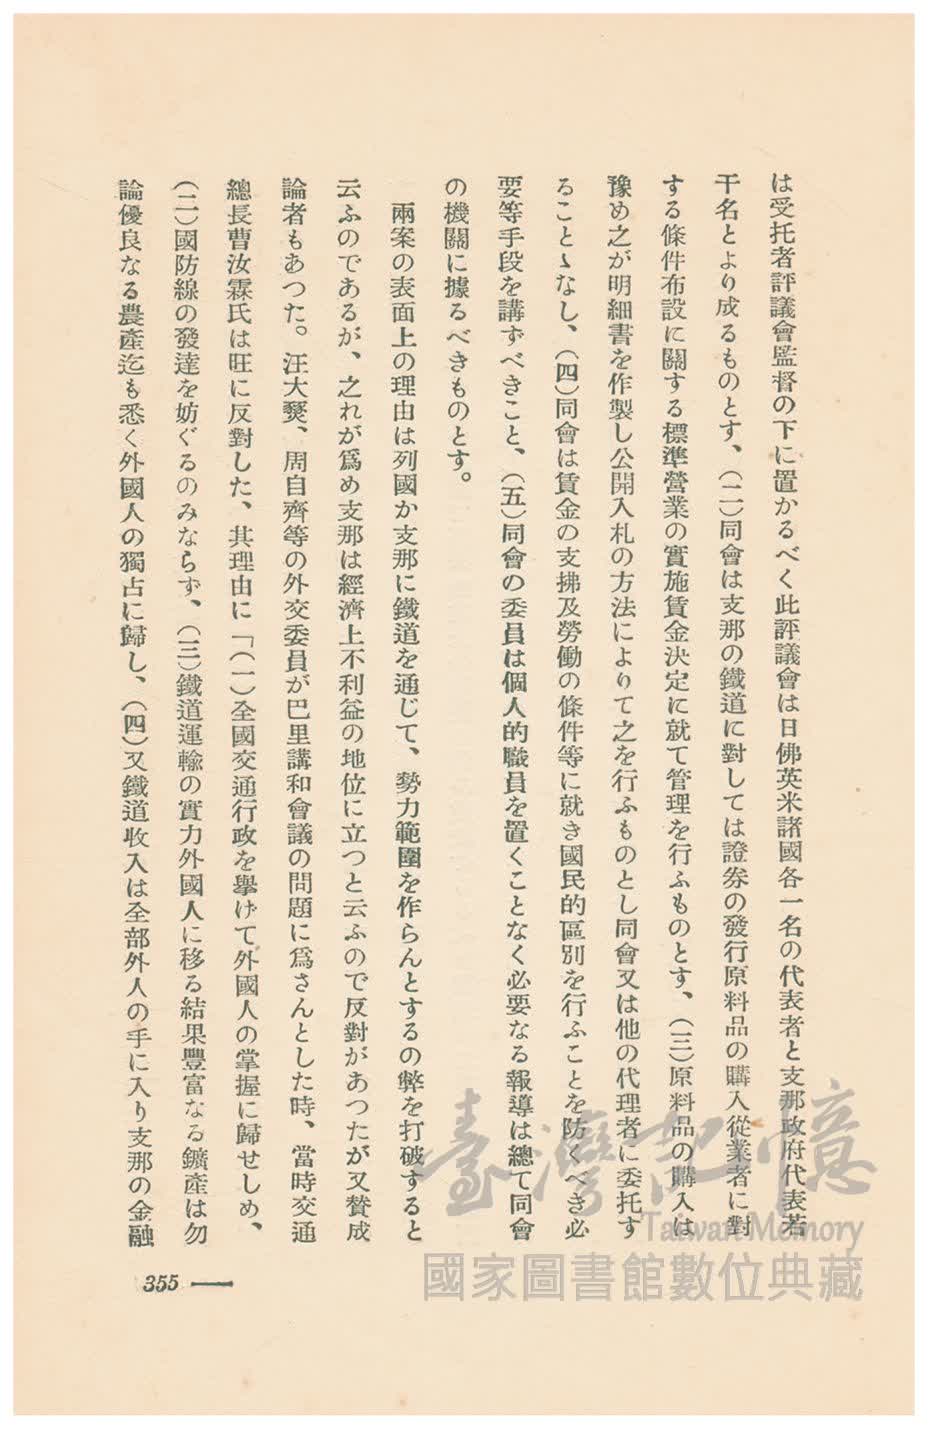 は受托者評議會監督の下に置かるべく此評議會は日佛英米諸國各一名の代表者と支那政府代表若
干名とより成るものとす、(二)同會は支那の鐵道に對しては證券の發行原料品の購入從業者に對
する條件布設に關する標準營業の實施賃金決定に就て管理を行ふものとす、(三)原料品の購入は
豫め之が明細書を作製し公開入札の方法によりて之を行ふものとし同會又は他の代理者に委托す
ることゝなし、(四)同會は賃金の支拂及勞働の條件等に就き國民的區別を行ふことを防くべき必
要等手段を講ずべきこと、(五)同會の委員は個人的職員を置くことなく必要なる報導は總て同會
の機關に據るべきものとす。
兩案の表面上の理由は列國か支那に鐵道を通じて、勢力範圍を作らんとするの弊を打破すると
云ふのであるが、之れが爲め支那は經濟上不利益の地位に立つと云ふので反對があつたが又賛成
論者もあつた。汪大燮、周自齊等の外交委員が巴里講和會議の問題に爲さんとした時、當時交通
總長曹汝霖氏は旺に反對した、其理由に「(一)全國交通行政を擧けて外國人の掌握に歸せしめ、
(二)國防線の發達を妨ぐるのみならず、(三)鐵道運輸の實力外國人に移る結果豐富なる鑛產は勿
論優良なる農產迄も悉く外國人の獨占に歸し、(四)又鐵道收入は全部外人の手に入り支那の金融
355
臺灣記憶
Taiwan Memory
國家圖書館數位典藏